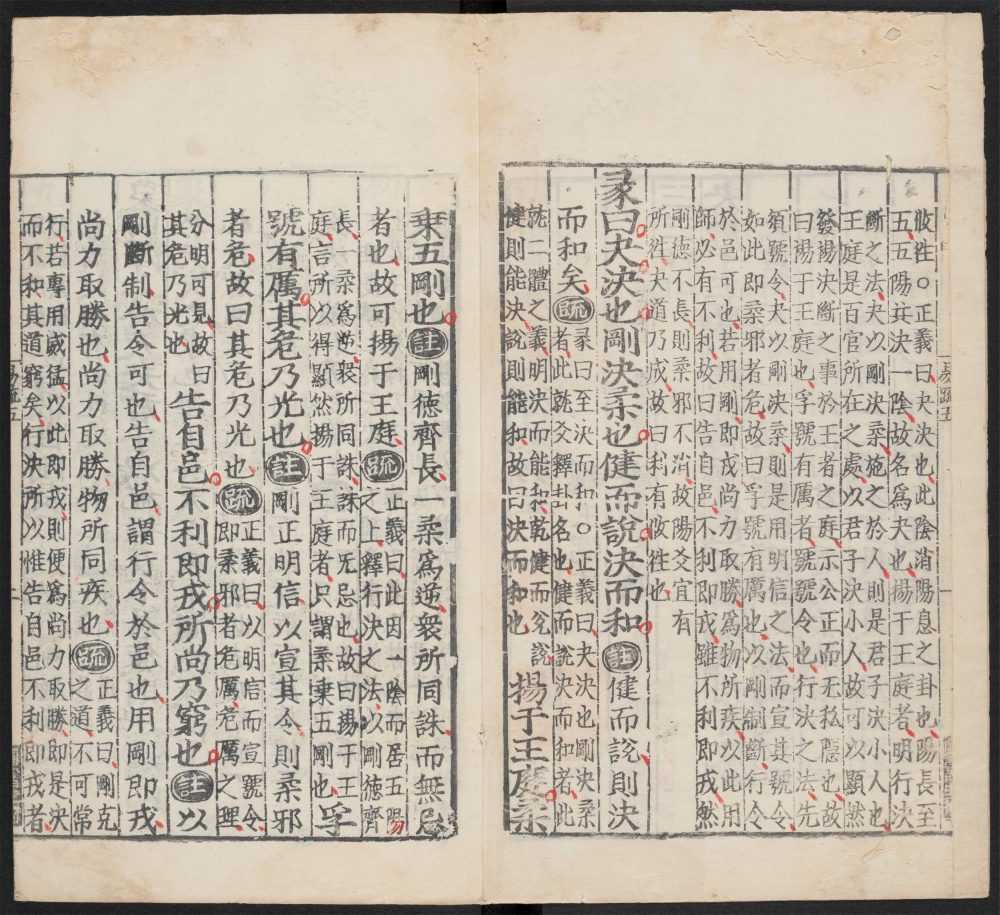 攸徃○正義曰夬決也此陰消陽息之卦也陽長至
五五陽共決一陰故名爲夬也揚于王庭者明行決
斷之法夬以剛決柔施之於人則是君子決小人也
王庭是百官所在之處以君子決小人故可以顯然
發揚決斷之事於王者之庭示公正而无私隱也故
曰揚于王庭也孚號有厲者號號令也行決之法先
須號令夬以剛決柔則是用明信之法而宣其號令
如此即柔邪者危故曰孚號有厲也以剛制斷行令
於邑可也若用剛即戎尚力取勝爲物所疾以此用
師必有不利故曰告自邑不利即戎雖不利即戎然
剛德不長則柔邪不消故陽爻宜有
所徃夬道乃成故曰利有攸徃也
彖曰夬決也剛決柔也健而說決而和註健而說則決
而和矣疏彖曰至決而和○正義曰夬決也剛決柔
者此就爻釋卦名也健而說決而和者此
就二體之義明決而能和乾健而兌說
健則能決說則能和故曰決而和也揚于王庭柔
乗五剛也註剛德齊長一柔爲逆衆所同誅而無忌
者也故可揚于王庭疏正義曰此因一陰而居五陽
之上釋行決之法以剛德齊
長一柔爲逆衆所同誅誅而无忌也故曰揚于王
庭言所以得顯然揚于王庭者只謂柔乗五剛也孚
號有厲其危乃光也註剛正明信以宣其令則柔邪
者危故曰其危乃光也疏正義曰以明信而宣號令
即柔邪者危厲危厲之理
分明可見故曰
其危乃光也告自邑不利即戎所尚乃窮也註以
剛斷制告令可也告自邑謂行令於邑也用剛即戎
尚力取勝也尚力取勝物所同疾也疏正義曰剛克
之道不可常
行若專用威猛以此即戎則便爲尚力取勝即是決
而不和其道窮矣行決所以惟告自邑不利即戎者
易疏五